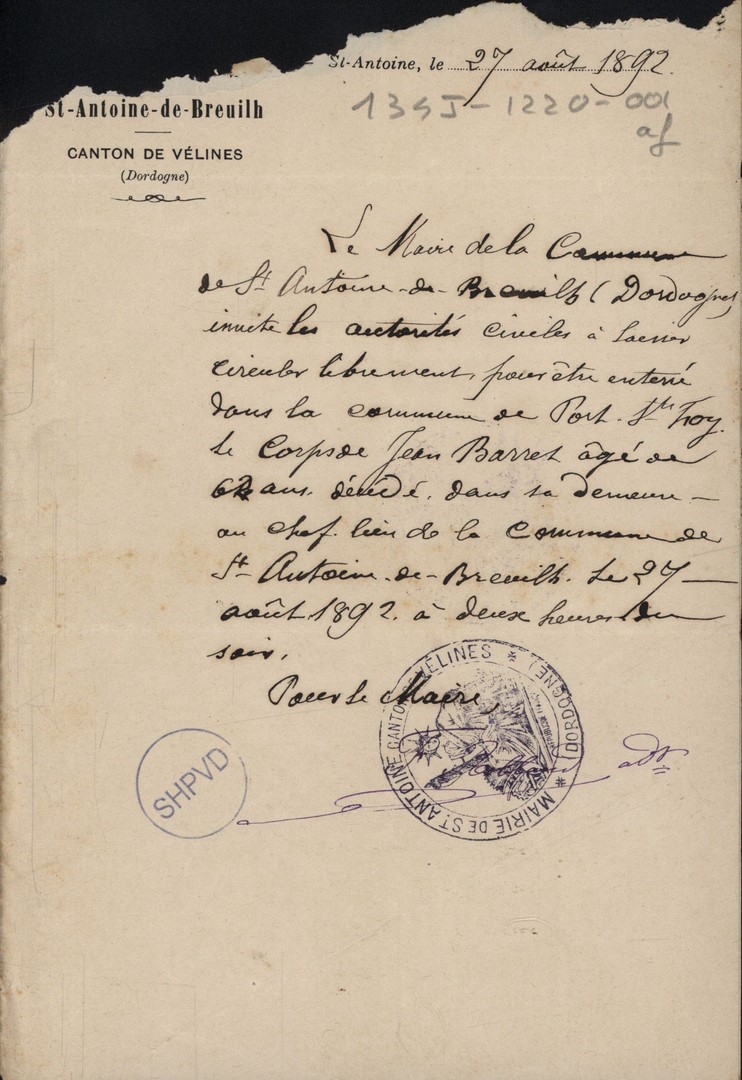 St-Antoine, le 27 août 1892.
St-Antoine-de-Breuilh
13SJ-1220-001
af
CANTON DE VÉLINES
(Dordogne)
Le Maire de la Commune
de St Antoine-de-Breuilh (Dordogne)
invite les autorités civiles à laisser
circuler librement, pour être enterré
dans la commune de Port-Ste Foy.
le Corps de Jean Barret âgé de
ans. décédé. dans sa demeure -
au chef. lieu de la Commune de
St-Antoine-de-Breuilh. Le 27 -
août 1892. à deux heures du
soir.
Pour le Maire,
adt
MAIRIE DE ST. ANTOINE CANTON VÉLINES * (DORDOGNE) *
SHPVD